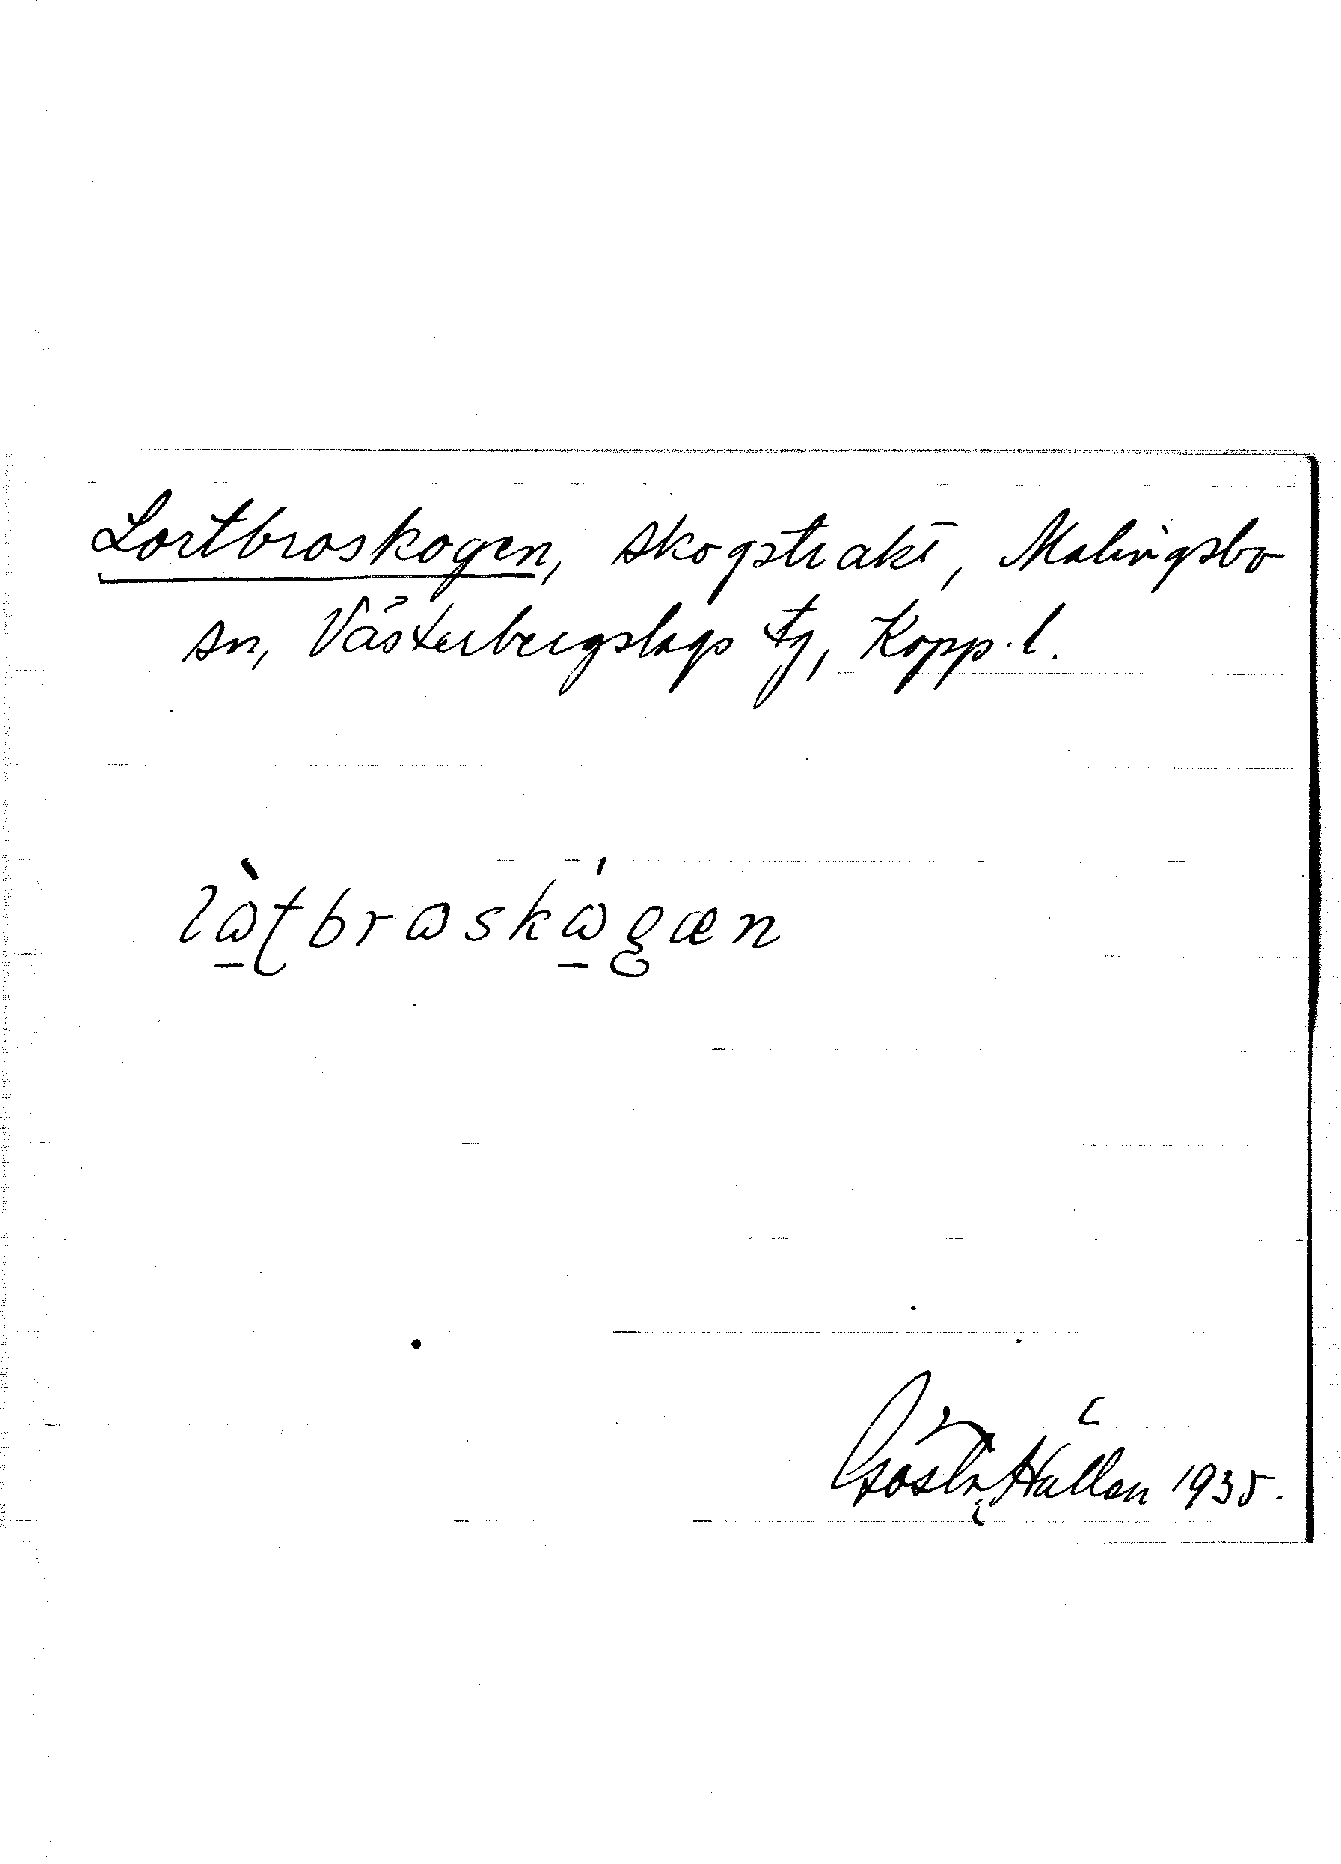 Lortbroskogen, skogstrakt, Malingsbo
sn, Västerbergslags tg, Kopp. l.
lὼ̲ʈbrωskώ̲gæn
Gösta Hallen 1935.